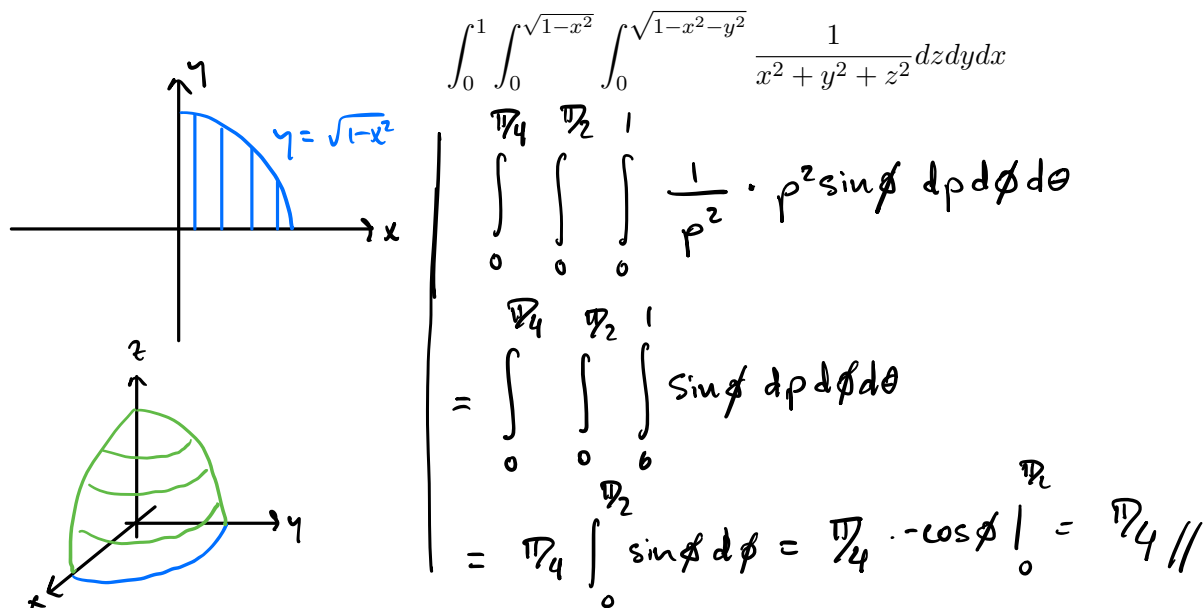 ∫_0^1 ∫_0^{√(1-x²)} ∫_0^{√(1-x²-y²)} 1/(x² + y² + z²) dzdydx
y
y = √(1-x²)
x
∫_0^{π/4} ∫_0^{π/2} ∫_0^1 1/ρ² · ρ² sinϕ dρ dϕ dθ
z
y
x
= ∫_0^{π/4} ∫_0^{π/2} ∫_0^1 sinϕ dρ dϕ dθ
= π/4 ∫_0^{π/2} sinϕ dϕ = π/4 · -cosϕ |_0^{π/2} = π/4 //